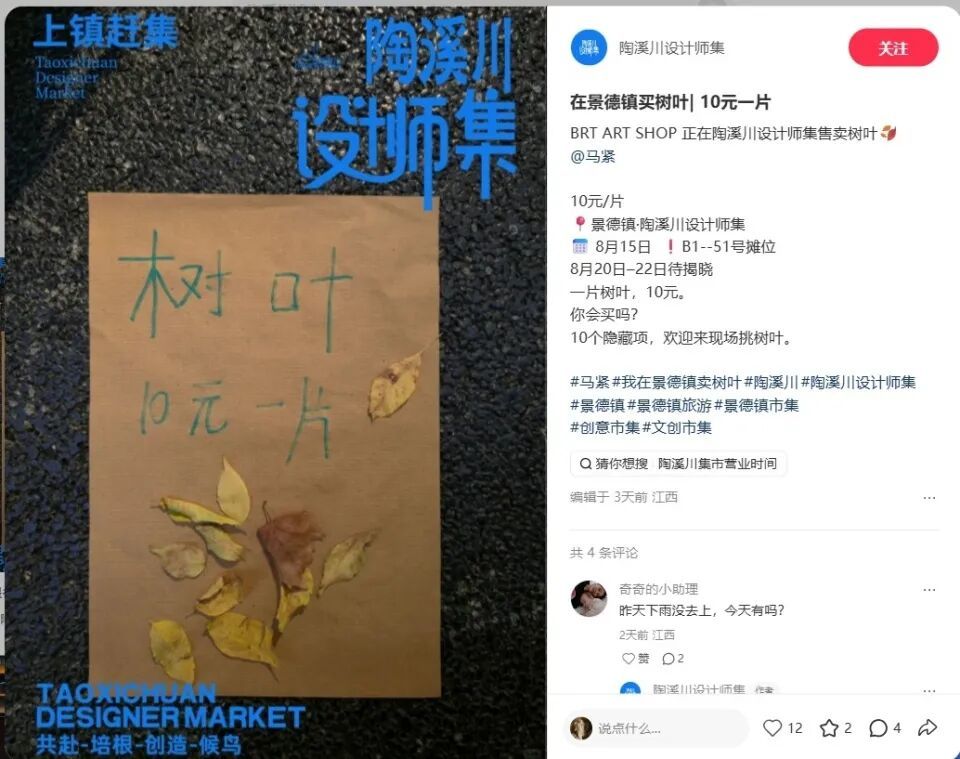 上镇赶集
Taoxichuan
Designer
Market
陶溪川
设计师集
树叶
10元一片
TAOXICHUAN
DESIGNER MARKET
共赴-培根-创造-候鸟
陶溪川设计师集
关注
在景德镇买树叶| 10元一片
BRT ART SHOP 正在陶溪川设计师集售卖树叶🍂
@马紧
10元/片
📍景德镇·陶溪川设计师集
📅 8月15日 ❗B1--51号摊位
8月20日–22日待揭晓
一片树叶，10元。
你会买吗？
10个隐藏项，欢迎来现场挑树叶。
#马紧 #我在景德镇卖树叶 #陶溪川 #陶溪川设计师集
#景德镇 #景德镇旅游 #景德镇市集
#创意市集 #文创市集
猜你想搜 陶溪川集市营业时间
编辑于 3天前 江西
共 4 条评论
奇奇的小助理
昨天下雨没去上，今天有吗？
2天前 江西
赞 2
陶溪川设计师集 作者
说点什么...
12 2 4